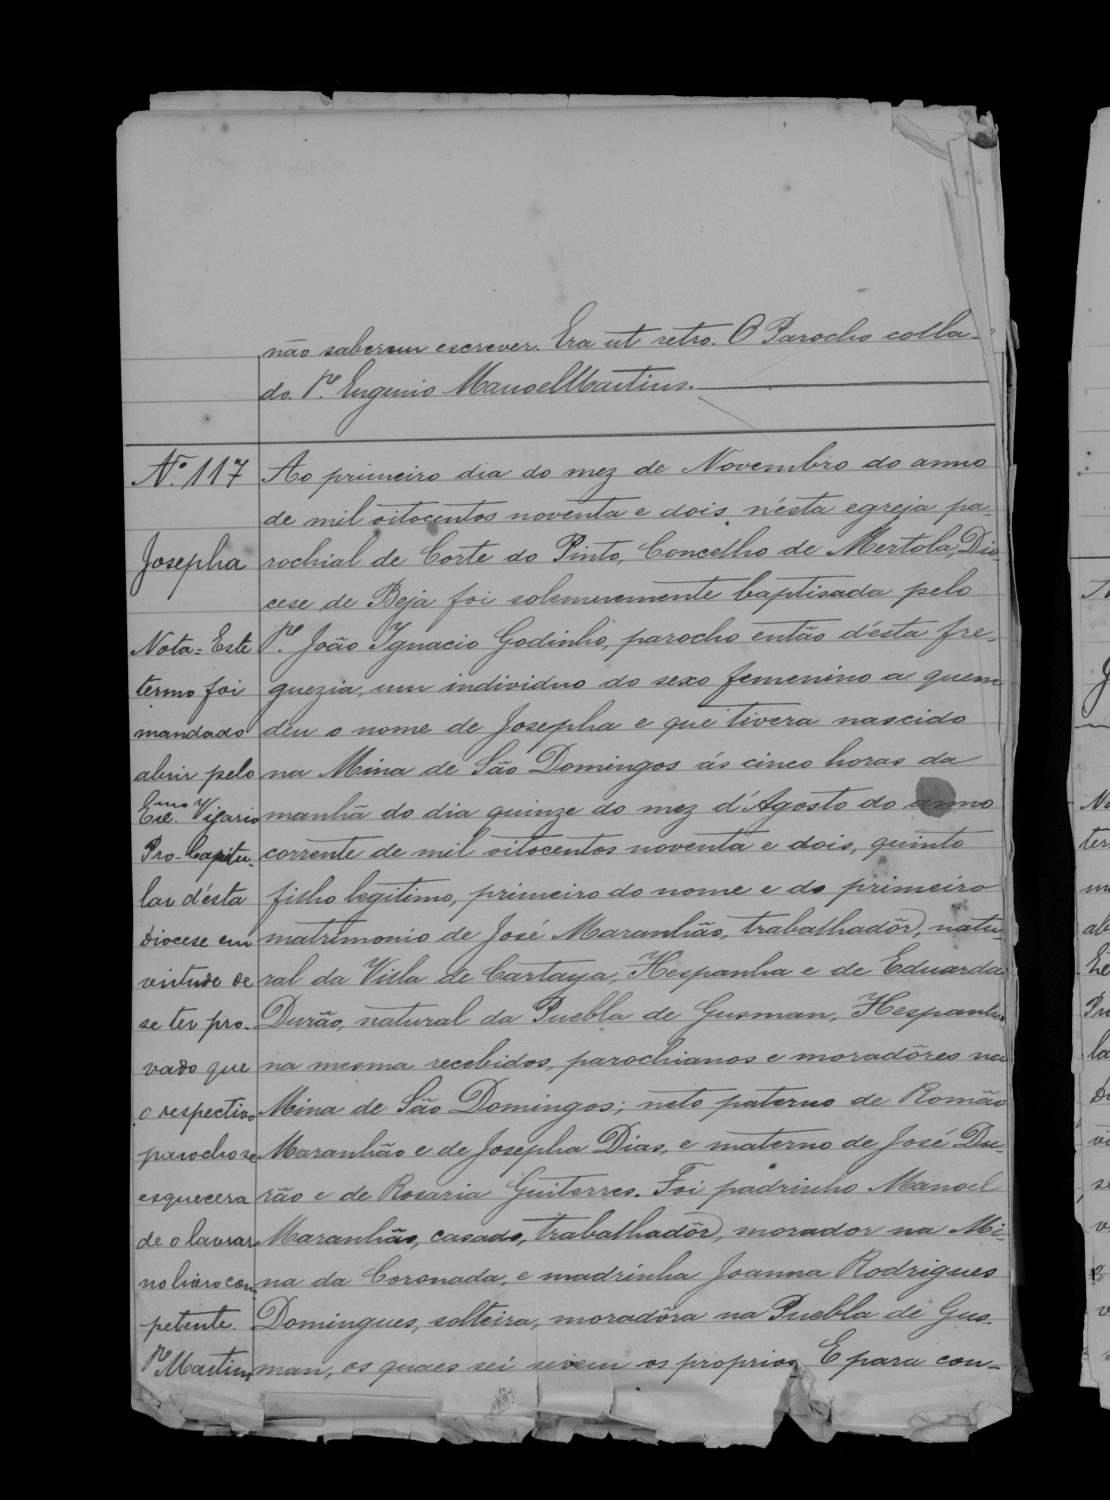 não saberem escrever. Era ut retro. O Parocho colla-
do. Pe. Eugenio Manoel Martins.
Nº. 117
Josepha
Nota = Este
termo foi
mandado
abrir pelo
Exmo. Vigario
Pro-Capitu-
lar d'ésta
Diocese em
virtude de
se ter pro-
vado que
o respectivo
parocho se
esquecera
de o lavrar
no livro com-
petente.
Pe Martins
Ao primeiro dia do mez de Novembro do anno
de mil oitocentos noventa e dois, n'ésta egreja pa-
rochial de Corte do Pinto, Concelho de Mertola, Dio-
cese de Beja foi solemnemente baptisada pelo
Pe. João Ignacio Godinho, parocho então d'ésta fre-
guezia, um individuo do sexo femenino a quem
deu o nome de Josepha e que tivera nascido
na Mina de São Domingos ás cinco horas da
manhã do dia quinze do mez d'Agosto do anno
corrente de mil oitocentos noventa e dois, quinto
filho legitimo, primeiro do nome e do primeiro
matrimonio de José Maranhão, trabalhadôr, natu-
ral da Villa de Cartaya, Hespanha e de Eduarda
Durão, natural da Puebla de Gusman, Hespanha
na mesma recebidos, parochianos e moradôres na
Mina de São Domingos; neto paterno de Romão
Maranhão e de Josepha Dias, e materno de José Du-
rão e de Rosaria Guiterres. Foi padrinho Manoel
Maranhão, casado, trabalhadôr, morador na Mi-
na da Coronada, e madrinha Joanna Rodrigues
Domingues, solteira, moradôra na Puebla de Gus-
man, os quaes sei serem os proprios. E para con-